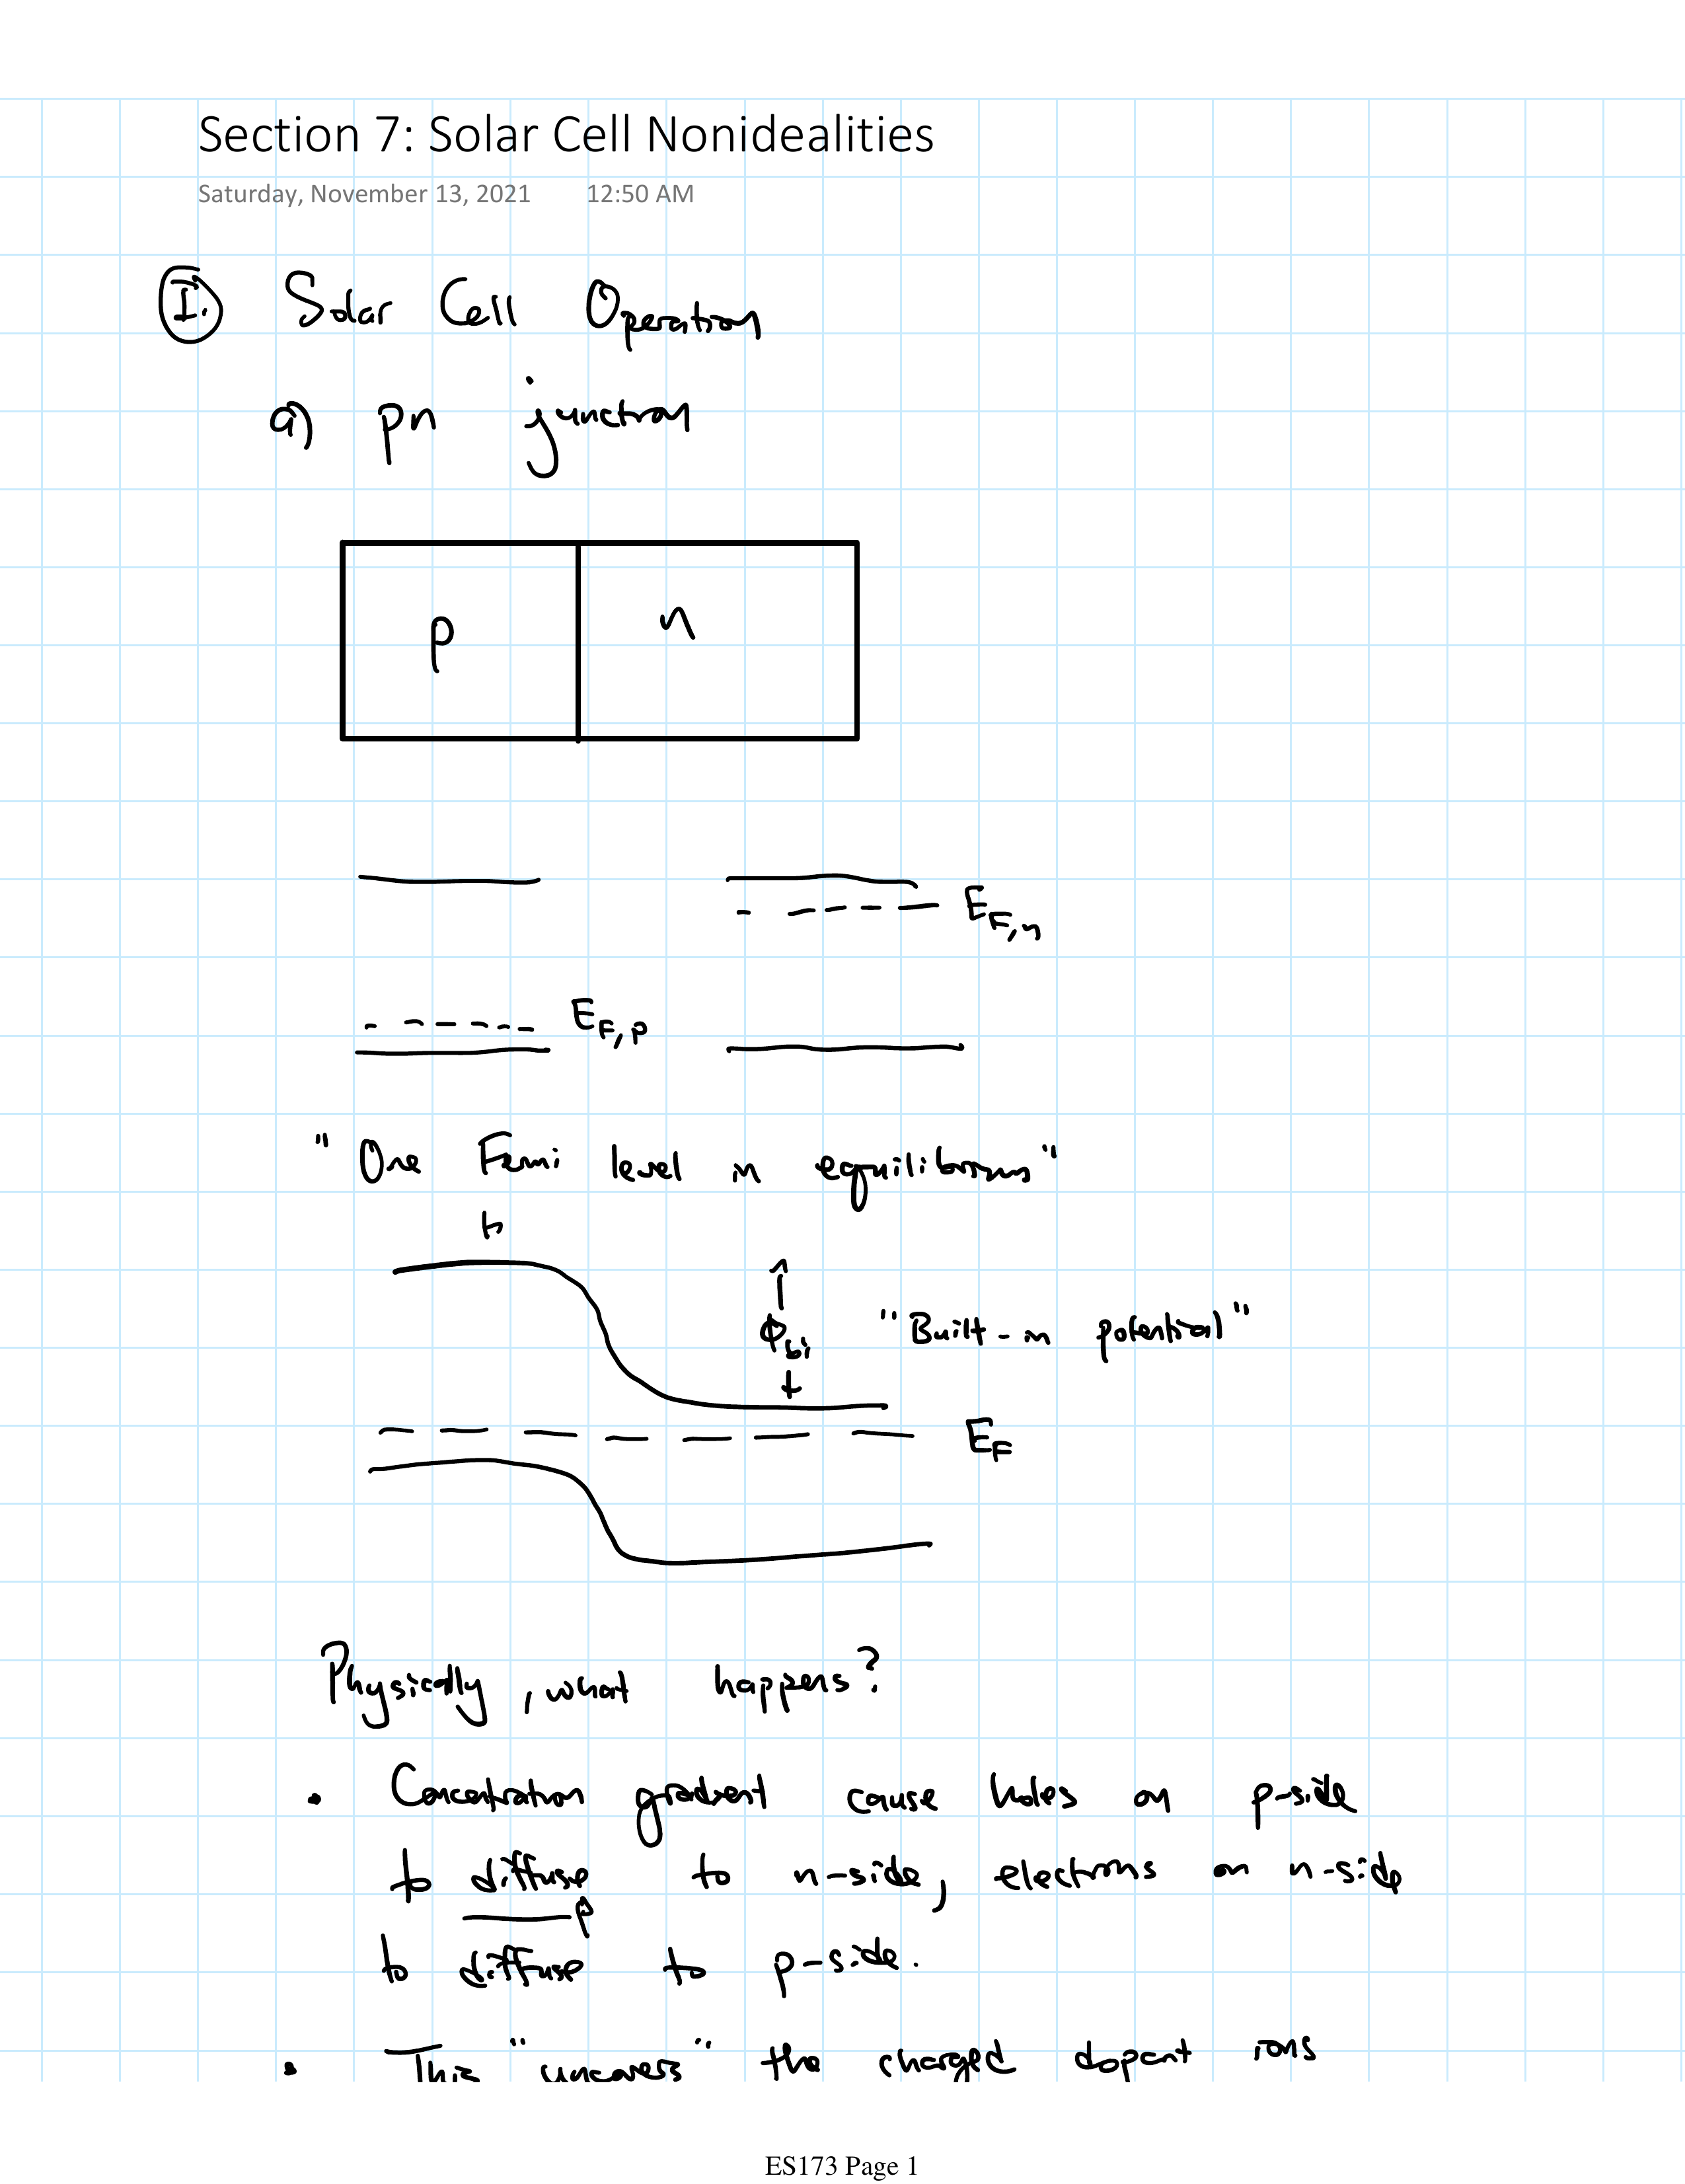 Section 7: Solar Cell Nonidealities
Saturday, November 13, 2021 12:50 AM
I. Solar Cell Operation
a) pn junction
p n
E_F,n
E_F,p
"One Fermi level in equilibrium"
Φ_bi "Built-in potential"
E_F
Physically, what happens?
• Concentration gradient cause holes on p-side
to diffuse to n-side, electrons on n-side
to diffuse to p-side.
• This "uncovers" the charged dopant ions
ES173 Page 1